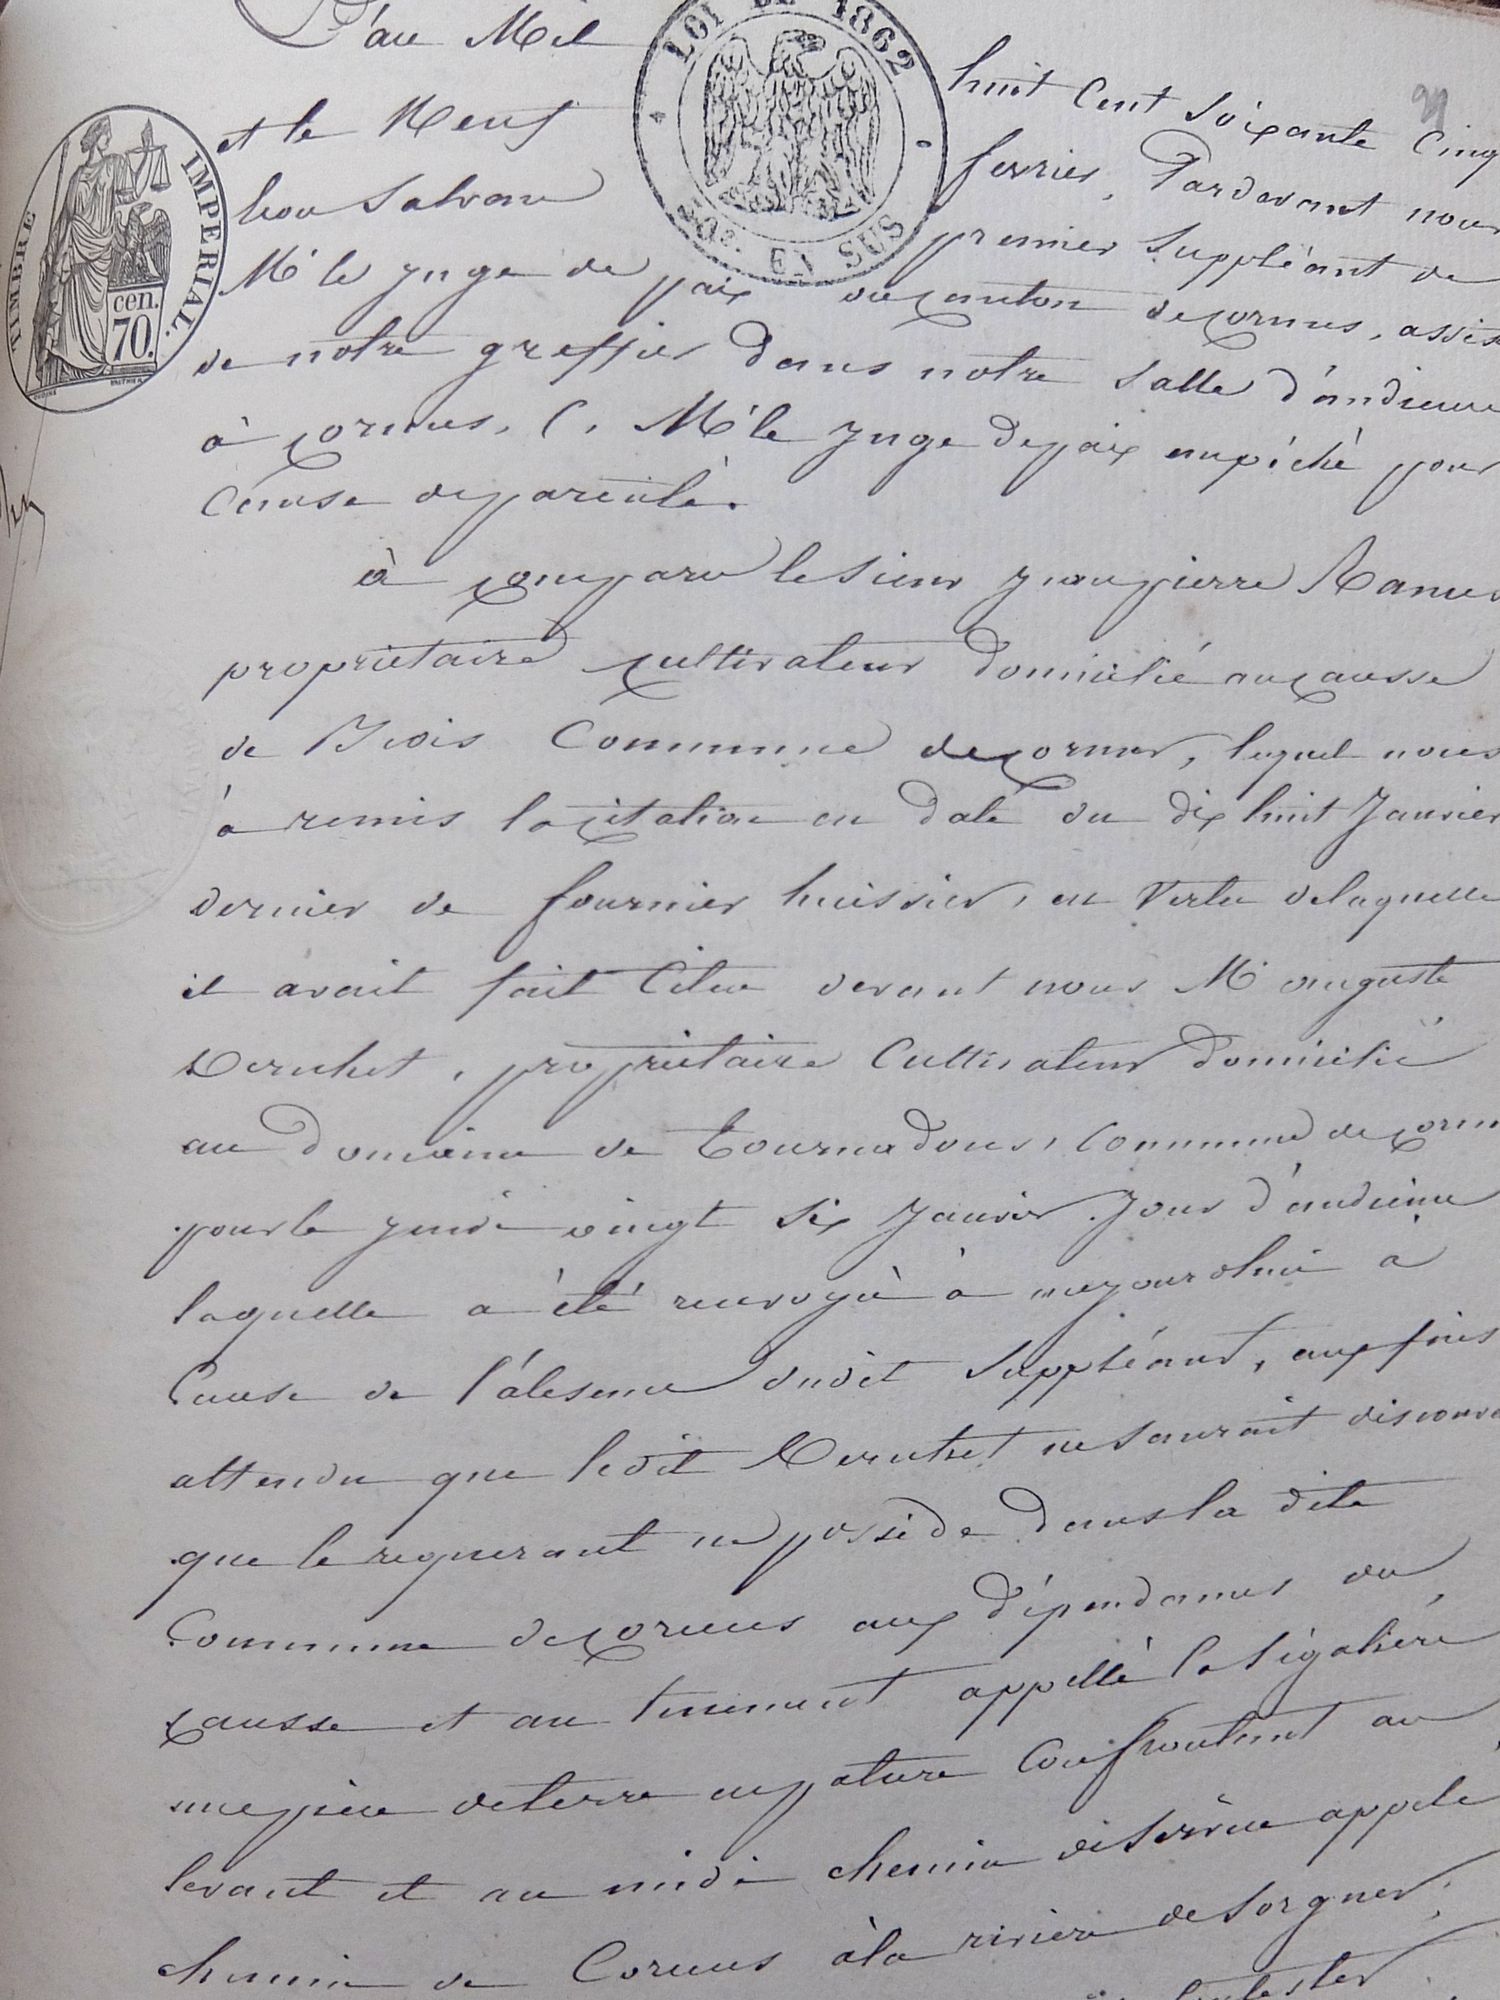 L'an Mil huit Cent Soixante Cinq
et le Neuf fevrier, Pardevant nous
leon Salvan premier Suppléant de
Mr le Juge de paix du canton de Cornus, assis
de notre greffier dans notre Salle d'audience
à Cornus, C. Mr le Juge de paix empéché pour
Cause de parenté.
à Comparu le Sieur Jean pierre Ramus
proprietaire cultivateur Domicilié au causse
de Commune de Cornus, lequel nous
à remis la citation en Date du dix huit Janvier
dernier de fournier huissier, en vertu de laquelle
il avait fait Citer devant nous Mr auguste
proprietaire Cultivateur Domicilié
au Domaine de Tournadous, Commune de Corn
pour le jeudi vingt Six Janvier Jour d'audience
laquelle a été renvoyé à aujourdhui à
Cause de l'absence dudit Suppléant, aux fins
attendu que ledit ne Saurait disconv
que le requerant ne posséde Dans la dite
Commune de Cornus aux dépendances du
causse et au tenement appellé la Ségalière
une pièce de terre en pature Confrontant au
levant et au midi chemin de Service appelé
chemin de Cornus à la rivière de Sorgues,
LOI DE 1862
50c. EN SUS
TIMBRE IMPERIAL.
cen.
70.